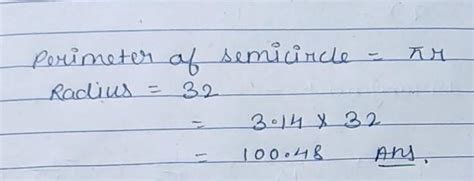 Perimeter of semicircle = πr
Radius = 32
= 3.14 × 32
= 100.48 Ans.